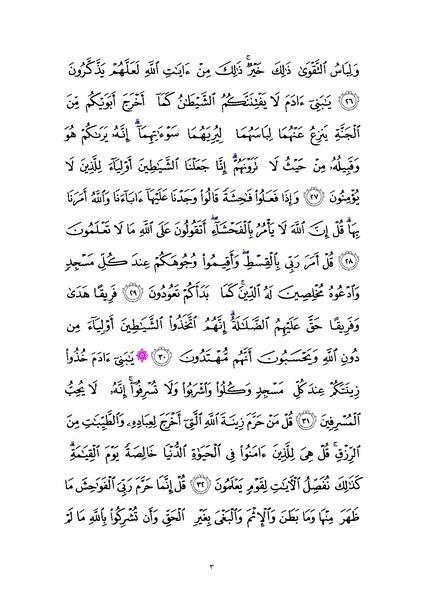 وَلِبَاسُ ٱلتَّقْوَىٰ ذَٰلِكَ خَيْرٌۚ ذَٰلِكَ مِنْ ءَايَٰتِ ٱللَّهِ لَعَلَّهُمْ يَذَّكَّرُونَ
﴿٢٦﴾ يَٰبَنِىٓ ءَادَمَ لَا يَفْتِنَنَّكُمُ ٱلشَّيْطَٰنُ كَمَآ أَخْرَجَ أَبَوَيْكُم مِّنَ
ٱلْجَنَّةِ يَنزِعُ عَنْهُمَا لِبَاسَهُمَا لِيُرِيَهُمَا سَوْءَٰتِهِمَآۗ إِنَّهُۥ يَرَىٰكُمْ هُوَ
وَقَبِيلُهُۥ مِنْ حَيْثُ لَا تَرَوْنَهُمْۗ إِنَّا جَعَلْنَا ٱلشَّيَٰطِينَ أَوْلِيَآءَ لِلَّذِينَ لَا
يُؤْمِنُونَ ﴿٢٧﴾ وَإِذَا فَعَلُوا۟ فَٰحِشَةً قَالُوا۟ وَجَدْنَا عَلَيْهَآ ءَابَآءَنَا وَٱللَّهُ أَمَرَنَا
بِهَاۗ قُلْ إِنَّ ٱللَّهَ لَا يَأْمُرُ بِٱلْفَحْشَآءِۖ أَتَقُولُونَ عَلَى ٱللَّهِ مَا لَا تَعْلَمُونَ
﴿٢٨﴾ قُلْ أَمَرَ رَبِّى بِٱلْقِسْطِۖ وَأَقِيمُوا۟ وُجُوهَكُمْ عِندَ كُلِّ مَسْجِدٍ
وَٱدْعُوهُ مُخْلِصِينَ لَهُ ٱلدِّينَۚ كَمَا بَدَأَكُمْ تَعُودُونَ ﴿٢٩﴾ فَرِيقًا هَدَىٰ
وَفَرِيقًا حَقَّ عَلَيْهِمُ ٱلضَّلَٰلَةُۗ إِنَّهُمُ ٱتَّخَذُوا۟ ٱلشَّيَٰطِينَ أَوْلِيَآءَ مِن
دُونِ ٱللَّهِ وَيَحْسَبُونَ أَنَّهُم مُّهْتَدُونَ ﴿٣٠﴾ ۞ يَٰبَنِىٓ ءَادَمَ خُذُوا۟
زِينَتَكُمْ عِندَ كُلِّ مَسْجِدٍ وَكُلُوا۟ وَٱشْرَبُوا۟ وَلَا تُسْرِفُوٓا۟ۚ إِنَّهُۥ لَا يُحِبُّ
ٱلْمُسْرِفِينَ ﴿٣١﴾ قُلْ مَنْ حَرَّمَ زِينَةَ ٱللَّهِ ٱلَّتِىٓ أَخْرَجَ لِعِبَادِهِۦ وَٱلطَّيِّبَٰتِ مِنَ
ٱلرِّزْقِۚ قُلْ هِىَ لِلَّذِينَ ءَامَنُوا۟ فِى ٱلْحَيَوٰةِ ٱلدُّنْيَا خَالِصَةً يَوْمَ ٱلْقِيَٰمَةِۗ
كَذَٰلِكَ نُفَصِّلُ ٱلْءَايَٰتِ لِقَوْمٍ يَعْلَمُونَ ﴿٣٢﴾ قُلْ إِنَّمَا حَرَّمَ رَبِّىَ ٱلْفَوَٰحِشَ مَا
ظَهَرَ مِنْهَا وَمَا بَطَنَ وَٱلْإِثْمَ وَٱلْبَغْىَ بِغَيْرِ ٱلْحَقِّ وَأَن تُشْرِكُوا۟ بِٱللَّهِ مَا لَمْ
٣